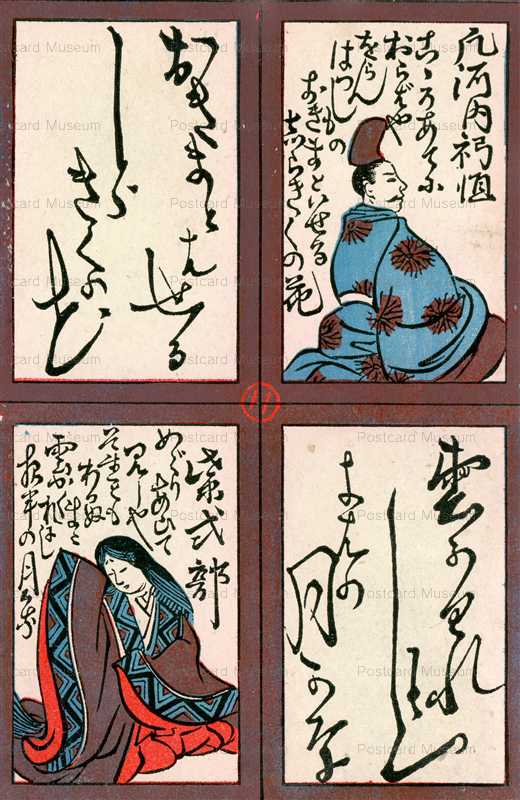 凡河内躬恒
こゝろあてに
おらばや
をらん
はつしもの
おきまどはせる
しらぎくの花
おきまと
はせる
しら
きくの
はな
11
雲かくれ
にし
よはの
月かな
紫式部
めぐりあひて
見しや
それとも
わかぬまに
雲がくれにし
夜半の月かな
Postcard Museum